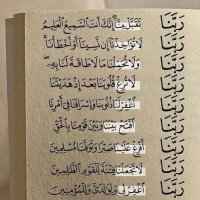 رَبَّنَا تَقَبَّلْ مِنَّا إِنَّكَ أَنْتَ السَّمِيعُ الْعَلِيمُ
رَبَّنَا لَا تُؤَاخِذْنَا إِنْ نَسِينَا أَوْ أَخْطَأْنَا
رَبَّنَا وَلَا تُحَمِّلْنَا مَا لَا طَاقَةَ لَنَا بِهِ
رَبَّنَا لَا تُزِغْ قُلُوبَنَا بَعْدَ إِذْ هَدَيْتَنَا
رَبَّنَا اغْفِرْ لَنَا ذُنُوبَنَا وَإِسْرَافَنَا فِي أَمْرِنَا
رَبَّنَا افْتَحْ بَيْنَنَا وَبَيْنَ قَوْمِنَا بِالْحَقِّ
رَبَّنَا أَفْرِغْ عَلَيْنَا صَبْرًا وَتَوَفَّنَا مُسْلِمِينَ
رَبَّنَا لَا تَجْعَلْنَا فِتْنَةً لِلْقَوْمِ الظَّالِمِينَ
رَبَّنَا اغْفِرْ لِي وَلِوَالِدَيَّ وَلِلْمُؤْمِنِينَ